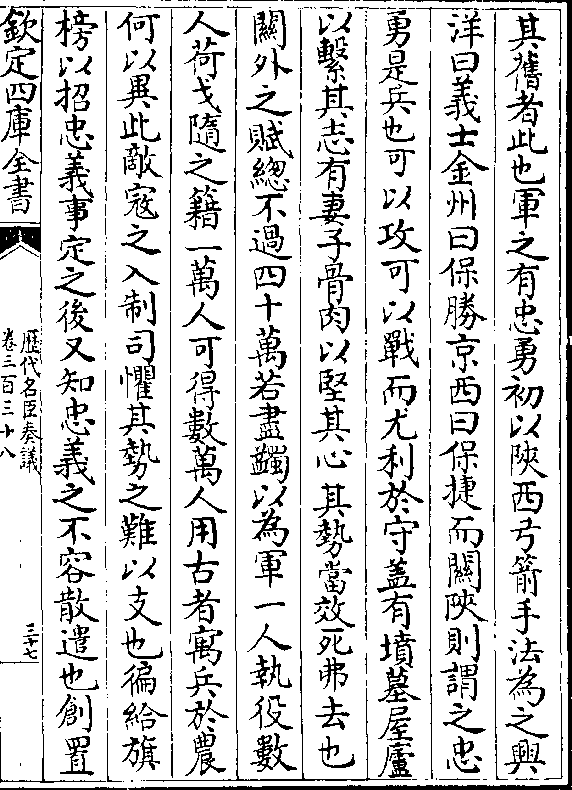 其舊者此也軍之有忠勇初以陝西弓箭手法為之興
洋曰義士金州曰保勝京西曰保捷而關陝則謂之忠
勇是兵也可以攻可以戰而尤利於守蓋有墳墓屋廬
以繫其志有妻子骨肉以堅其心其勢當效死弗去也
關外之賦總不過四十萬若盡蠲以為軍一人執役數
人荷戈隨之籍一萬人可得數萬人用古者寓兵於農
何以異此敵寇之入制司懼其勢之難以支也徧給旗
榜以招忠義事定之後又知忠義之不容散遣也創置
欽定四庫全書
歷代名臣奏議
卷三百三十八
三十七